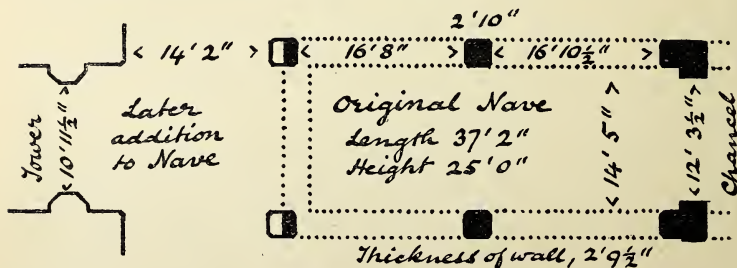 2'10"
< 14'2" >
< 16'8" >
< 16'10½" >
Tower
< 10'11½" >
Later
addition
to Nave
Original Nave
Length 37'2"
Height 25'0"
< 14'5" >
< 12'3½" >
Chancel
Thickness of wall, 2'9½"